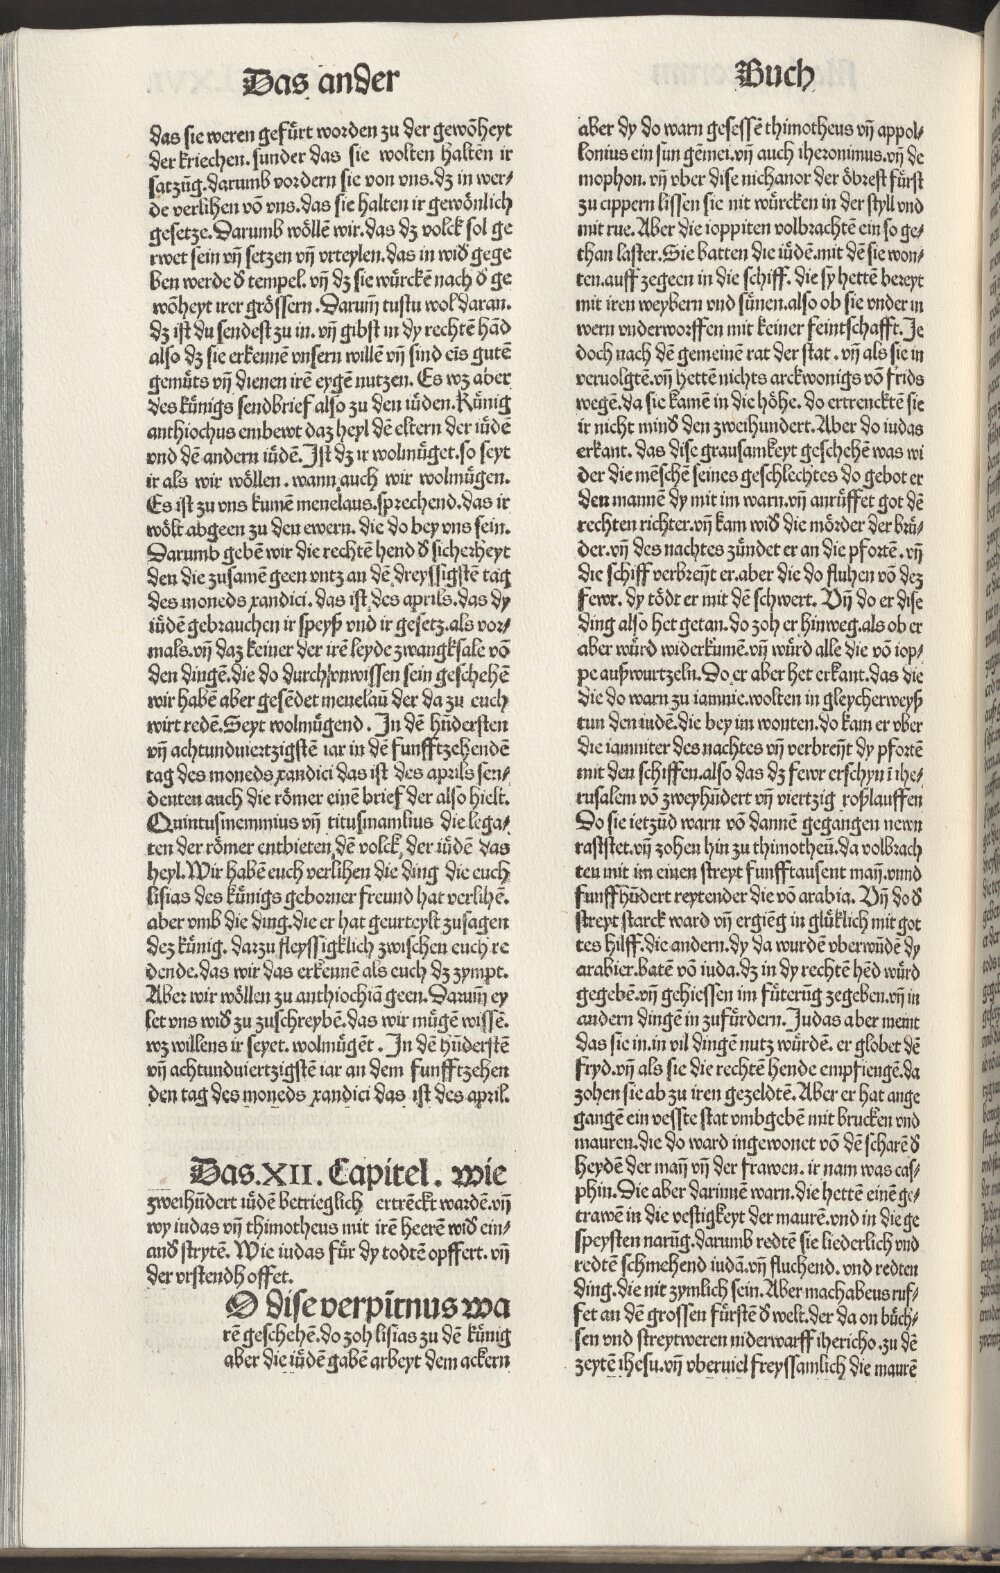 Das ander
Buch
das sie weren gefůrt worden zu der gewõheyt
der kriechen. sunder das sie wolten haltẽ ir
satzũg.darumb vordern sie von vns.dz in wer⸗
de verlihen võ vns.das sie halten ir gewönlich
gesetze.Darumb wöllẽ wir.das dz volck sol ge
rwet sein vñ setzen vñ vrteylen.das in wiđ gege
ben werde đ tempel. vñ dz sie wůrckẽ nach đ ge
wõheyt irer grössern.Darum̃ tustu wol daran.
dz ist du sendest zu in.vñ gibst in dy rechtẽ hãd
also dz sie erkennẽ vnsern willẽ vñ sind eis gutẽ
gemůts vñ dienen irẽ eygẽ nutzen. Es wz aber
des kůnigs sendbrief also zu den iůden.Kůnig
anthiochus embewt daz heyl dẽ eltern der iůdẽ
vnd dẽ andern iůdẽ.Ist dz ir wolmůget.so seyt
ir als wir wöllen.wann auch wir wolmůgen.
Es ist zu vns kumẽ menelaus.sprechend.das ir
wölt abgeen zu den ewern.die do bey vns sein.
Darumb gebẽ wir die rechtẽ hend đ sicherheyt
den die zusamẽ geen vntz an dẽ dreyssigstẽ tag
des moneds xandici.das ist des aprils.das dy
iůdẽ gebrauchen ir speyß vnd ir gesetz.als vor⸗
mals.vñ daz keiner der irẽ leyde zwangksale võ
den dingẽ.die do durch vnwissen sein geschehẽ
wir habẽ aber gesẽdet menelaũ der da zu euch
wirt redẽ.Seyt wolmůgend. In dẽ hũdersten
vñ achtundviertzigstẽ iar in dẽ funfftzehendẽ
tag des moneds xandici das ist des aprils sen⸗
denten auch die römer einẽ brief der also hielt.
Quintusmemmius vñ titusmamlius die lega⸗
ten der römer entbieten dẽ volck der iůdẽ das
heyl.Wir habẽ euch verlihen die ding die euch
lisias des kůnigs geborner freund hat verlihẽ.
aber vmb die ding.die er hat geurteylt zusagen
dez kůnig. darzu fleyssigklich zwischen euch re
dende.das wir das erkennẽ als euch dz zympt.
Aber wir wöllen zu anthiochiã geen.Darum̃ ey
let vns wiđ zu zuschreybẽ.das wir můgẽ wissẽ.
wz willens ir seyet. wolmůgẽt. In dẽ hũderstẽ
vñ achtundviertzigstẽ iar an dem funfftzehen
den tag des moneds xandici das ist des april.
Das.XII. Capitel. wie
zweihũdert iůdẽ betrieglich ertrẽckt wardẽ.vñ
wy iudas vñ thimotheus mit irẽ heerẽ wiđ ein⸗
anđ strytẽ. Wie iudas fůr dy todtẽ opffert. vñ
der vrstend hoffet.
O dise verpĩtnus wa
rẽ geschehẽ.do zoh lisias zu dẽ kůnig
aber die iůdẽ gabẽ arbeyt dem ackern
aber dy do warn gesessẽ thimotheus vñ appol⸗
lonius ein sun gẽmei.vñ auch iheronimus.vñ de
mophon. vñ vber dise nichanor der öbrest fůrst
zu cippern lissen sie nit wůrcken in der styll vnd
mit rue. Aber die ioppiten volbrachtẽ ein so ge⸗
than laster.Sie batten die iůdẽ.mit dẽ sie won⸗
ten.auff zegeen in die schiff. die sy hettẽ bereyt
mit iren weybern vnd sůnen.also ob sie vnder in
wern vnderworffen mit keiner feintschafft.Je
doch nach dẽ gemeinẽ rat der stat. vñ als sie in
veruolgtẽ.vñ hettẽ nichts arckwonigs võ frids
wegẽ.da sie kamẽ in die höhe. do ertrencktẽ sie
ir nicht minđ den zweihundert. Aber do iudas
erkant. das dise grausamkeyt geschehẽ was wi
der die mẽschẽ seines geschlechtes do gebot er
den mannẽ dy mit im warn.vñ anrůffet got dẽ
rechten richter.vñ kam wiđ die mörder der brů⸗
der.vñ des nachtes zůndet er an die pfortẽ. vñ
die schiff verbreñt er.aber die do fluhen võ dez
fewr. dy tödt er mit dẽ schwert. Vñ do er dise
ding also het getan.do zoh er hinweg.als ob er
aber wůrd widerkumẽ.vñ wůrd alle die võ iop⸗
pe außwurtzeln.Do er aber het erkant.das die
die do warn zu iamnie.wolten in gleycherweyß
tun den iudẽ.die bey im wonten.do kam er vber
die iamniter des nachtes vñ verbreñt dy pfortẽ
mit den schiffen.also das dz fewr erschyn ĩ ihe⸗
rusalem võ zweyhũdert vñ viertzig roßlauffen
Do sie ietzũd warn võ dannẽ gegangen newn
raststet.vñ zohen hin zu thimotheũ.da volbrach
ten mit im einen streyt funfftausent mañ.vnnd
funffhũdert reytender die võ arabia. Vñ do đ
streyt starck ward vñ ergiẽg in glůklich mit got
tes hilff.die andern.dy da wurdẽ vberwũdẽ dy
arabier.batẽ võ iuda.dz in dy rechtẽ hẽd wůrd
gegebẽ.vñ gehiessen im fůterũg zegeben.vñ in
andern dingẽ in zufůrdern.Judas aber meint
das sie in.in vil dingẽ nutz wůrdẽ. er globet dẽ
fryd.vñ als sie die rechtẽ hende empfiengẽ.da
zohen sie ab zu iren gezeldtẽ. Aber er hat ange
gangẽ ein vesste stat vmbgebẽ mit brucken vnd
mauren.die do ward ingewonet võ dẽ scharẽ đ
heydẽ der mañ vñ der frawen. ir nam was cas⸗
phin. Die aber darinnẽ warn.die hettẽ einẽ ge⸗
trawẽ in die vestigkeyt der maurẽ.vnd in die ge
speysten narũg.darumb redtẽ sie liederlich vnd
redtẽ schmehend iudã.vñ fluchend. vnd redten
ding.die nit zymlich sein. Aber machabeus ruf⸗
fet an dẽ grossen fůrstẽ đ welt.der da on bůch⸗
sen vnd streytweren niderwarff ihericho.zu dẽ
zeytẽ ihesu.vñ vberuiel freyssamlich die maurẽ